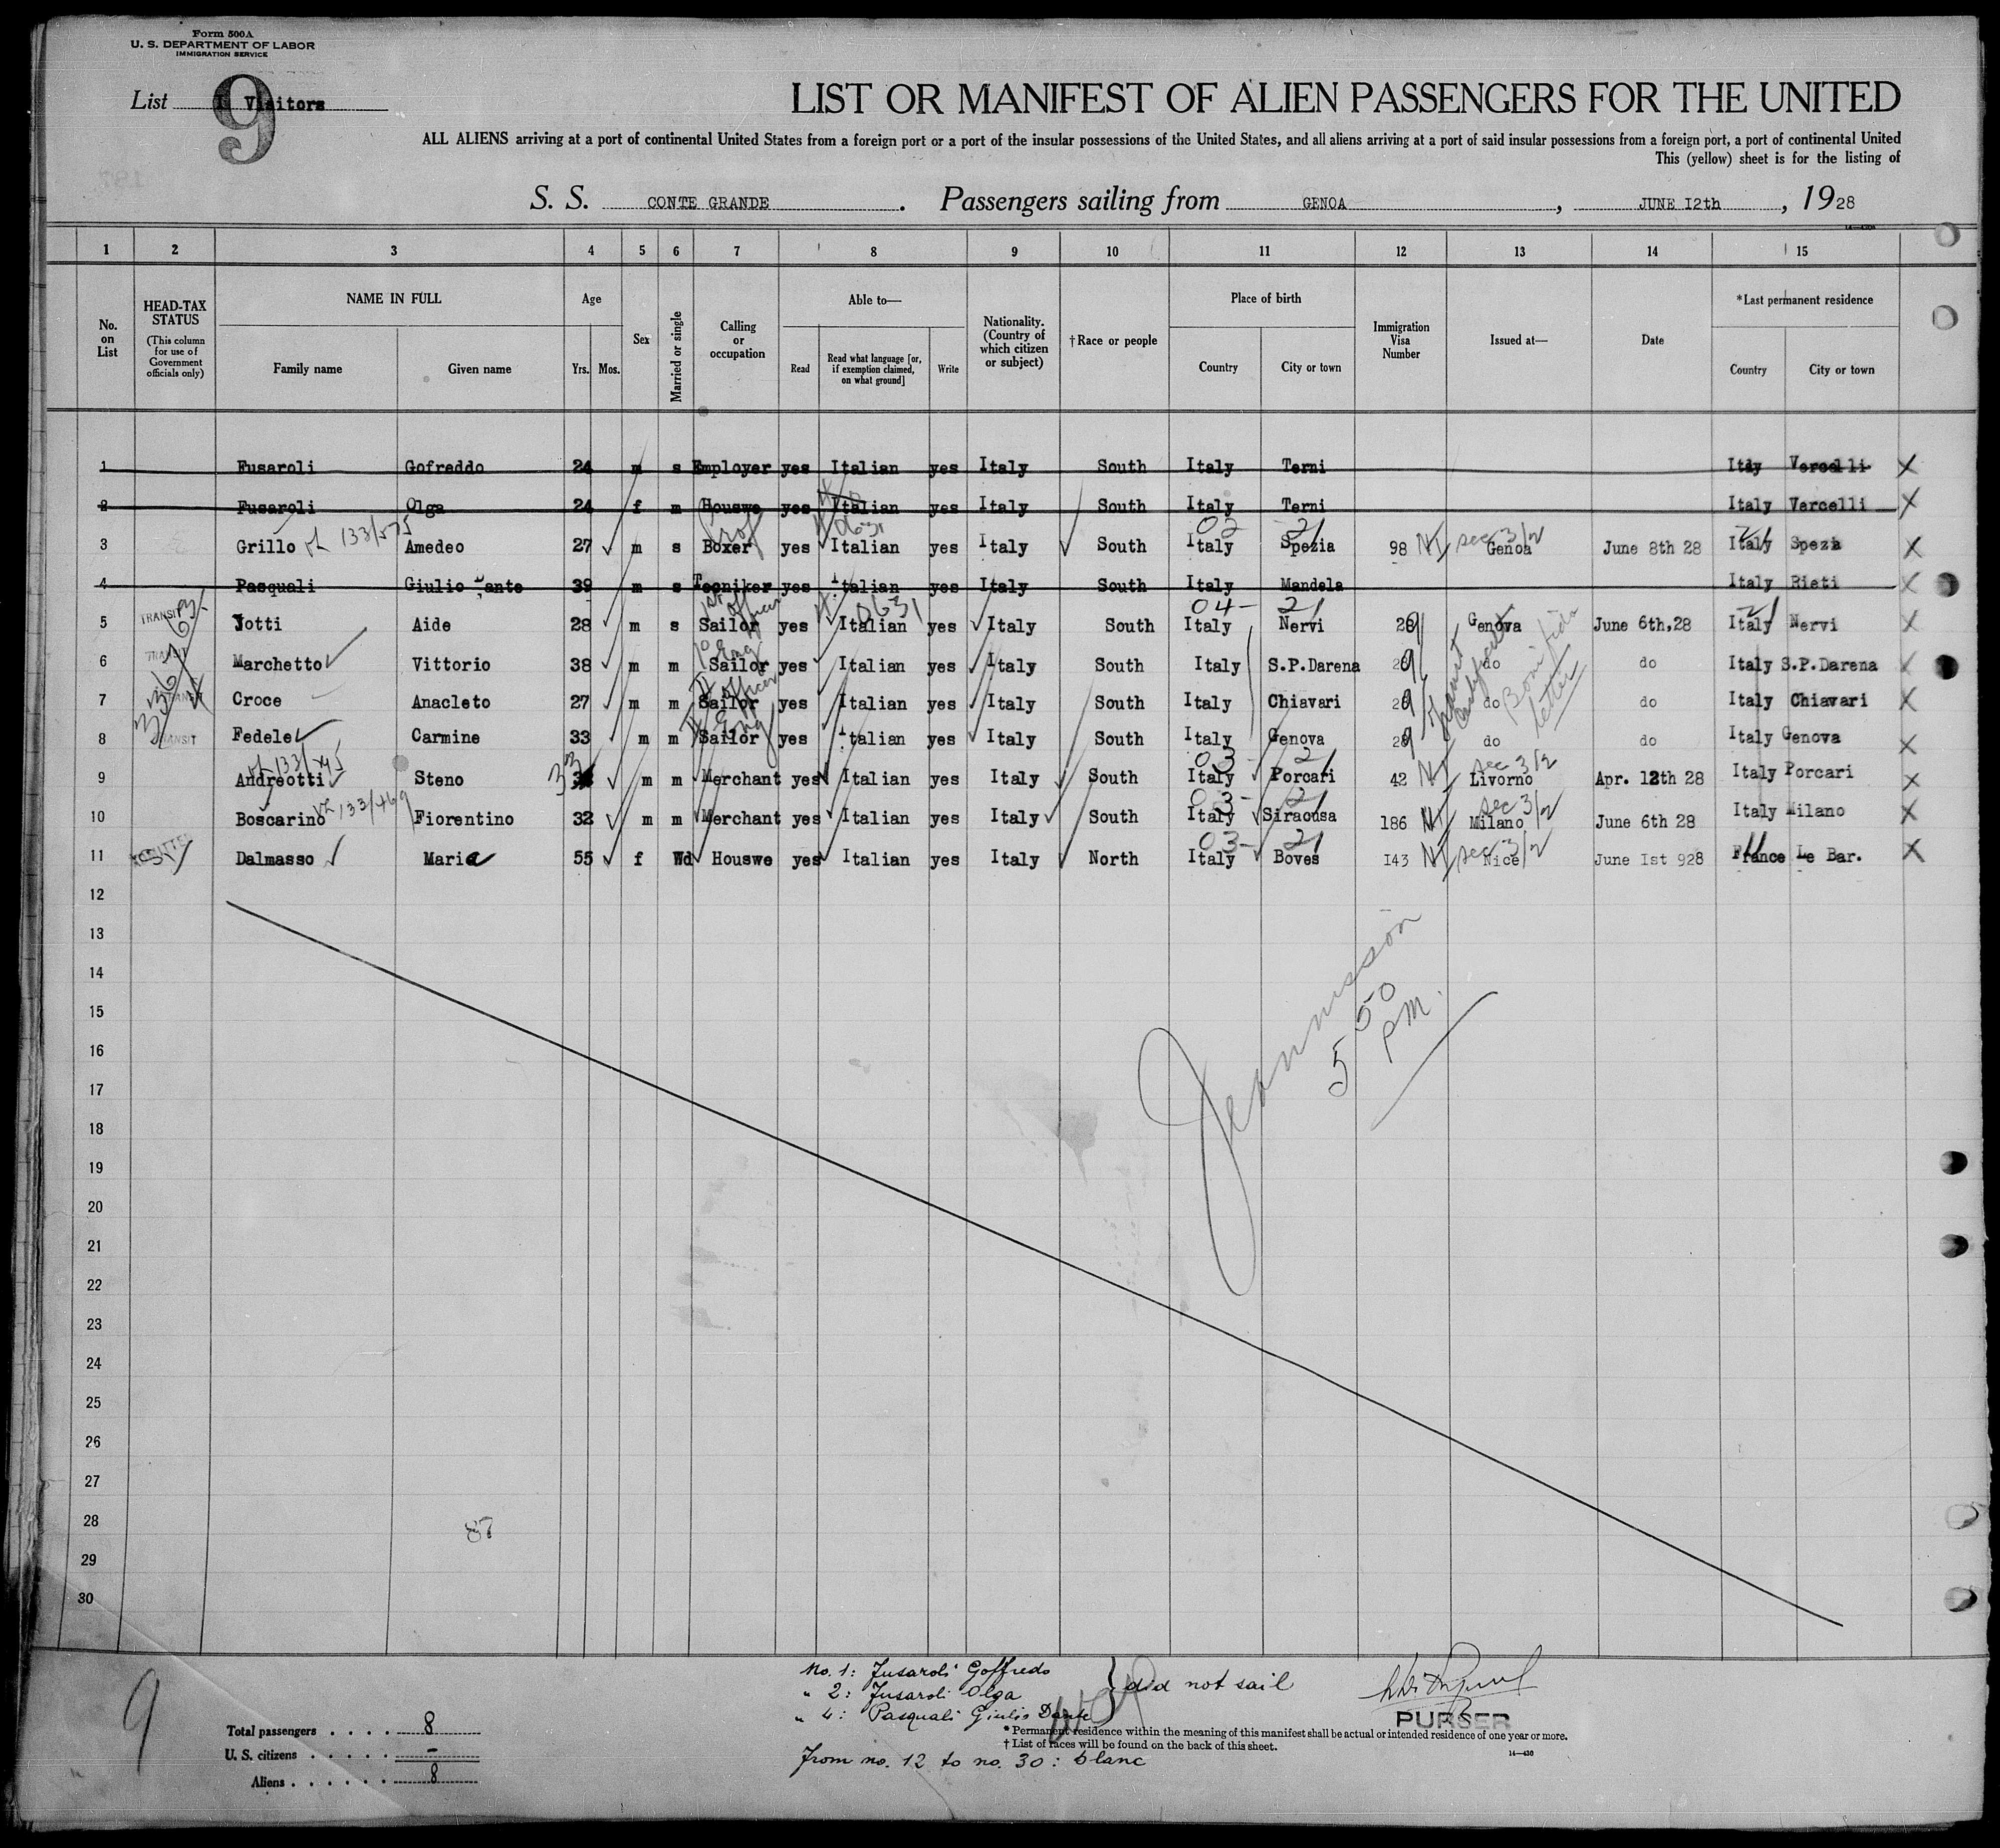 Form 500A
U. S. DEPARTMENT OF LABOR
IMMIGRATION SERVICE
List I Visitors
9
LIST OR MANIFEST OF ALIEN PASSENGERS FOR THE UNITED
ALL ALIENS arriving at a port of continental United States from a foreign port or a port of the insular possessions of the United States, and all aliens arriving at a port of said insular possessions from a foreign port, a port of continental United
This (yellow) sheet is for the listing of
S. S. CONTE GRANDE. Passengers sailing from GENOA, JUNE I2th, 1928
1 2 3 4 5 6 7 8 9 10 11 12 13 14 15
No. on List
HEAD-TAX STATUS (This column for use of Government officials only)
NAME IN FULL
Family name Given name
Age
Yrs. Mos.
Sex
Married or single
Calling or occupation
Able to—
Read Read what language [or, if exemption claimed, on what ground] Write
Nationality. (Country of which citizen or subject)
†Race or people
Place of birth
Country City or town
Immigration Visa Number
Issued at—
Date
*Last permanent residence
Country City or town
1 Fusaroli Gofreddo 24 m s Employer yes Italian yes Italy South Italy Terni Italy Vercelli X
2 Fusaroli Olga 24 f m Houswe yes Italian yes Italy South Italy Terni Italy Vercelli X
Prof 0631 02 - 21
3 Grillo 133/575 Amedeo 27 m s Boxer yes Italian yes Italy South Italy Spezia 98 NT sec 3/2 Genoa June 8th 28 Italy Spezia X
4 Pasquali Giulio Dante 39 m s Tecniker yes Italian yes Italy South Italy Mandela Italy Rieti X
1st officer 0631 04 - 21
5 TRANSIT Jotti Aide 28 m s Sailor yes Italian yes Italy South Italy Nervi 28 Genova June 6th.28 Italy Nervi X
6 TRANSIT Marchetto Vittorio 38 m m Sailor yes Italian yes Italy South Italy S.P.Darena do do Italy S.P.Darena X
II officer
7 TRANSIT Croce Anacleto 27 m m Sailor yes Italian yes Italy South Italy Chiavari do do Italy Chiavari X
Eng
8 TRANSIT Fedele Carmine 33 m m Sailor yes Italian yes Italy South Italy Genova do do Italy Genova X
Transit Certificate
Bonifide letter
03 - 21
9 Andreotti Steno 33 m m Merchant yes Italian yes Italy South Italy Porcari 42 NT sec 3/2 Livorno Apr. 12th 28 Italy Porcari X
03 - 21
10 Boscarino 133/469 Fiorentino 32 m m Merchant yes Italian yes Italy South Italy Siracusa 186 NT sec 3/2 Milano June 6th 28 Italy Milano X
03 - 21
11 Dalmasso Maria 55 f Wd Houswe yes Italian yes Italy North Italy Boves I43 NT sec 3/2 Nice June Ist 928 France Le Bar. X
12
13
14
15
16
17
18
19
20
21
22
23
24
25
26
27
28
29
30
5 50 PM.
87
9
Total passengers . . . . 8
U. S. citizens . . . . . –
Aliens . . . . . . 8
No. 1: Fusaroli Goffredo
" 2: Fusaroli Olga
" 4: Pasquali Giulio Dante
} did not sail
PURSER
* Permanent residence within the meaning of this manifest shall be actual or intended residence of one year or more.
† List of races will be found on the back of this sheet.
14—430
From no. 12 to no. 30: blanc